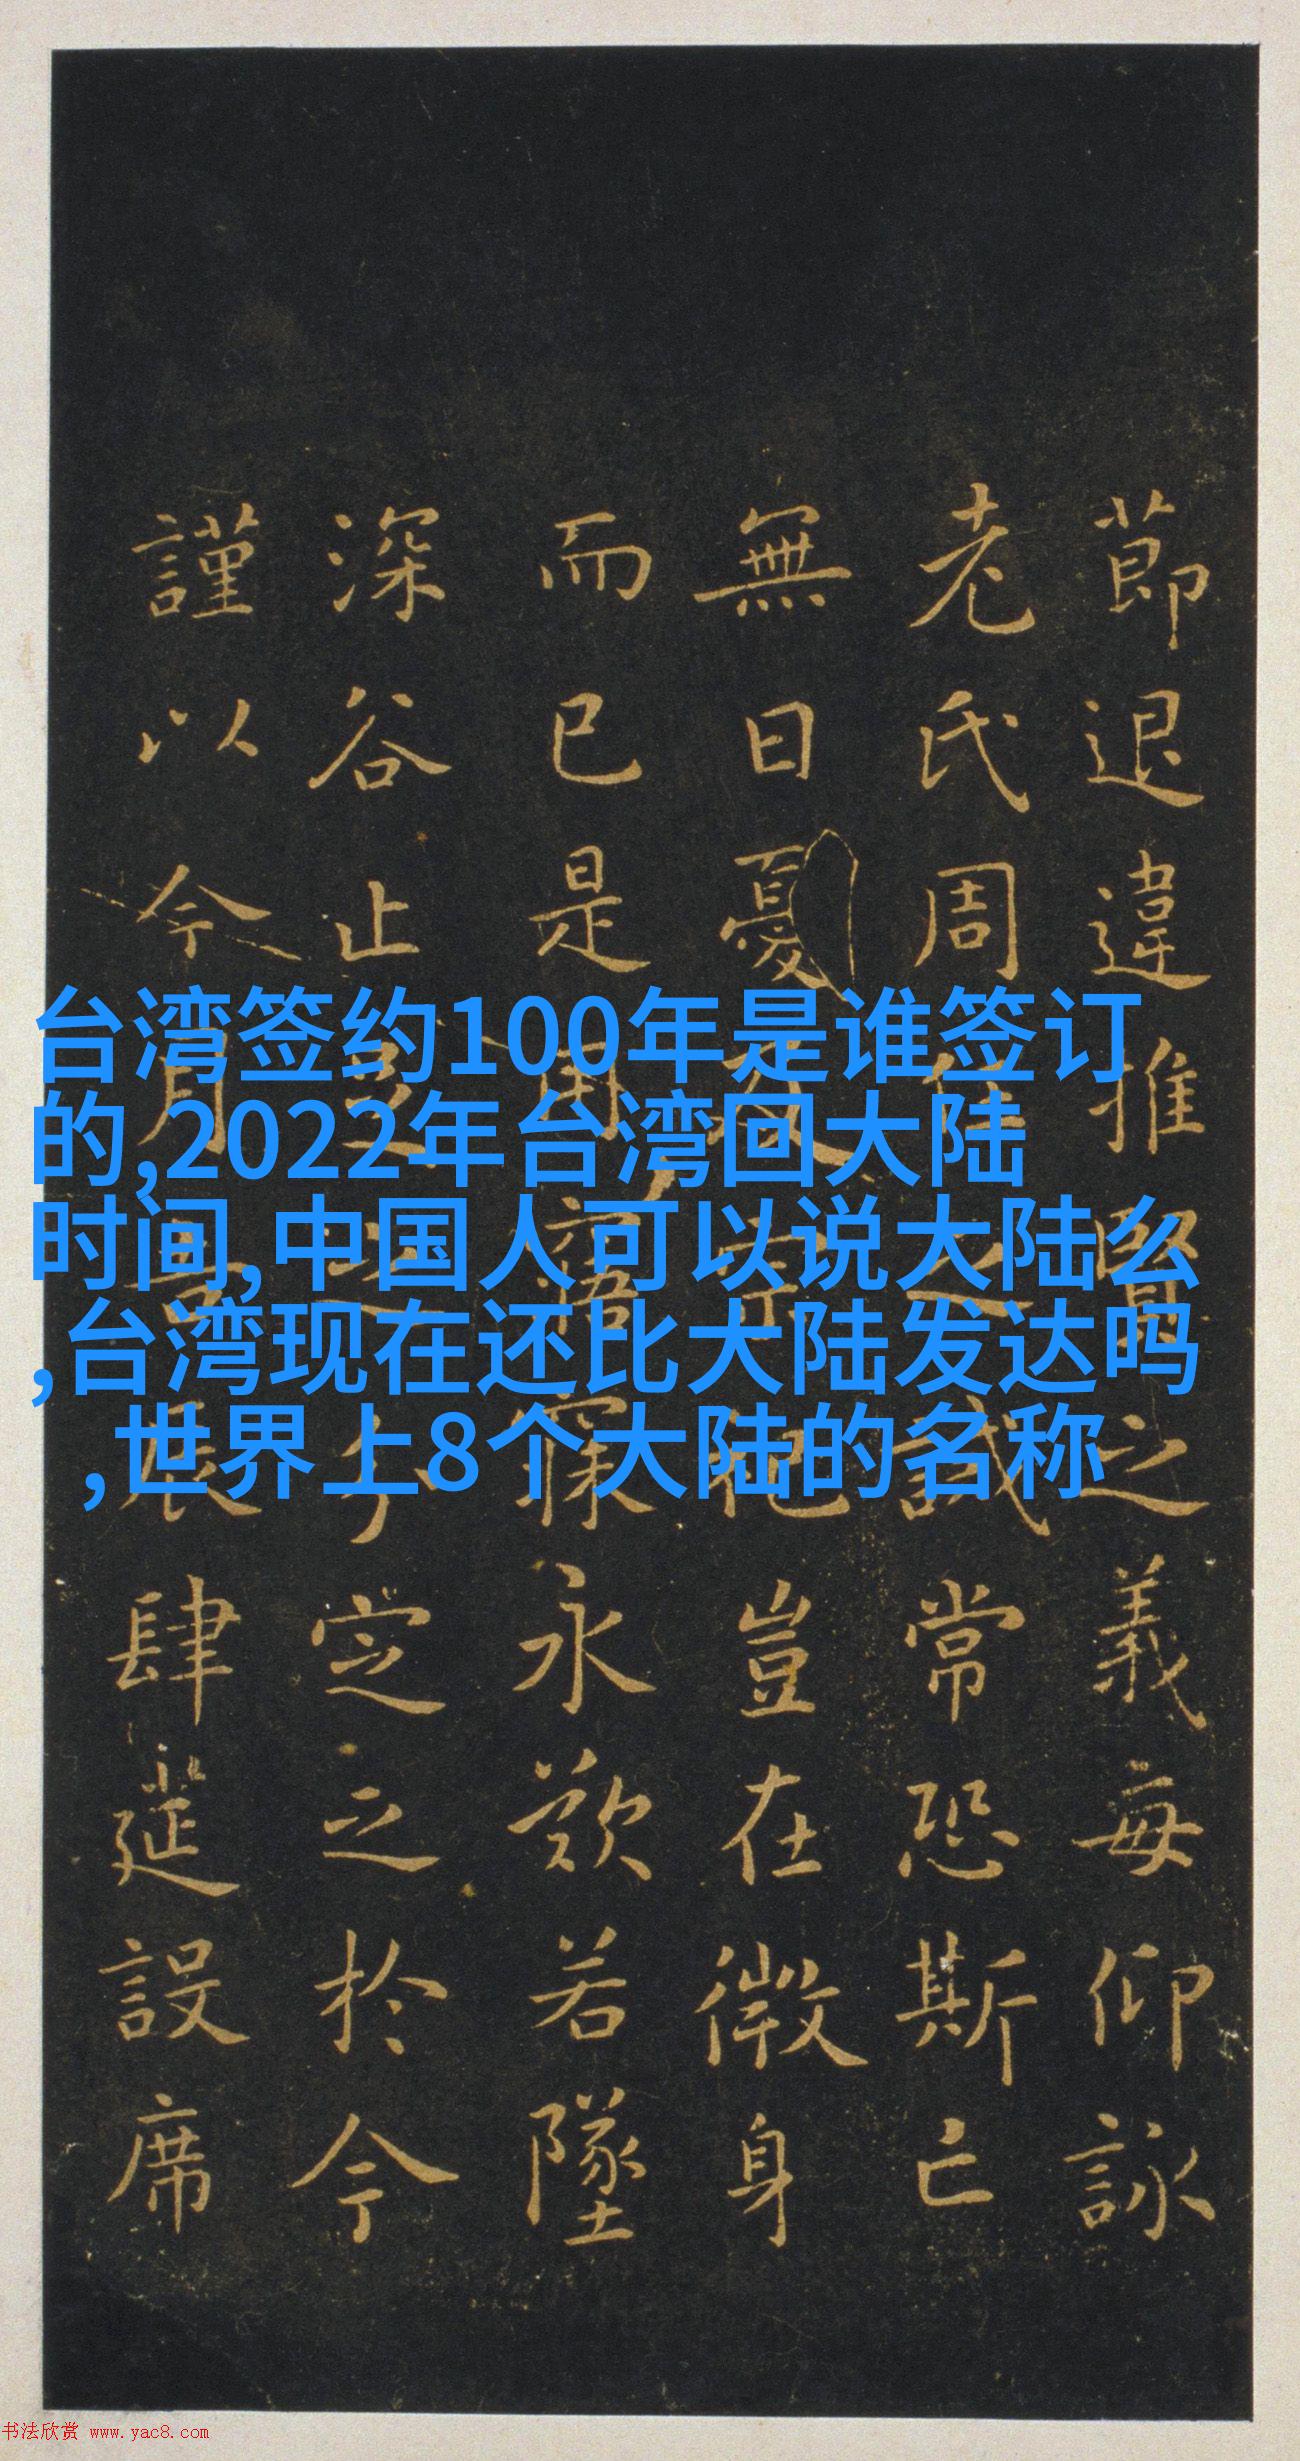 台湾签约100年是谁签订
的,2022年台湾回大陆
时间,中国人可以说大陆么
,台湾现在还比大陆发达吗
,世界上8个大陆的名称
莭退違推賢之義每仰詠
老氏周任之誡常恐斯亡
無日憂及宗祀豈在微身
而已是用寤寐永歎若墜
深谷止足之分定之於今
謹以今月吉辰肆筵設席
书法欣赏 www.yac8.com